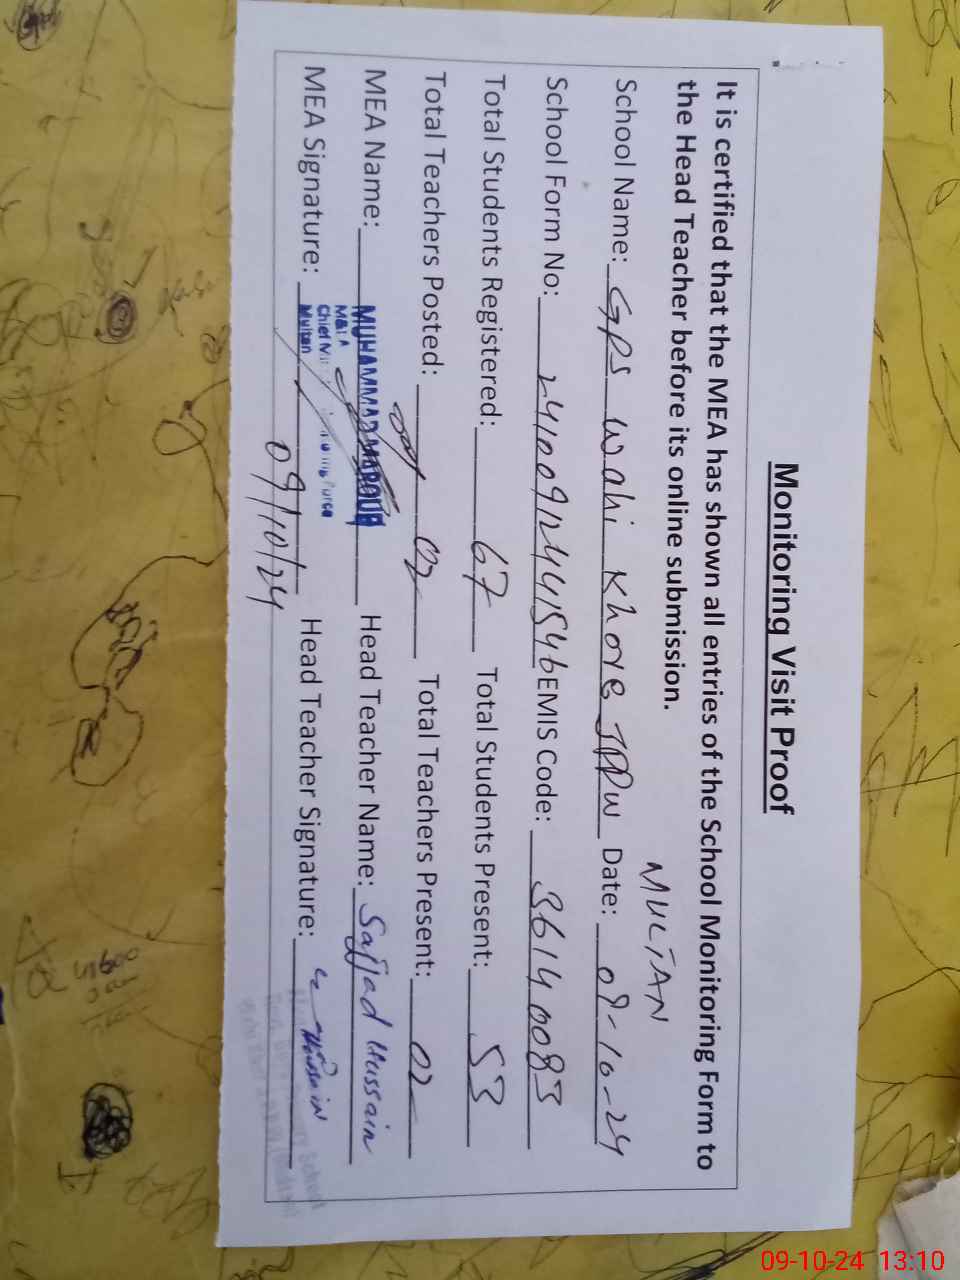 Monitoring Visit Proof
It is certified that the MEA has shown all entries of the School Monitoring Form to
the Head Teacher before its online submission.
MULTAN
School Name: GPS Wahi Khore JPPW Date: 09-10-24
School Form No: EMIS Code: 36140083
Total Students Registered: 67 Total Students Present: 53
Total Teachers Posted: 02 Total Teachers Present: 02
MEA Name: MUHAMMAD Head Teacher Name: Sajjad Hussain
MEA Signature: Head Teacher Signature: Hussain
Multan
09/10/24
09-10-24 13:10